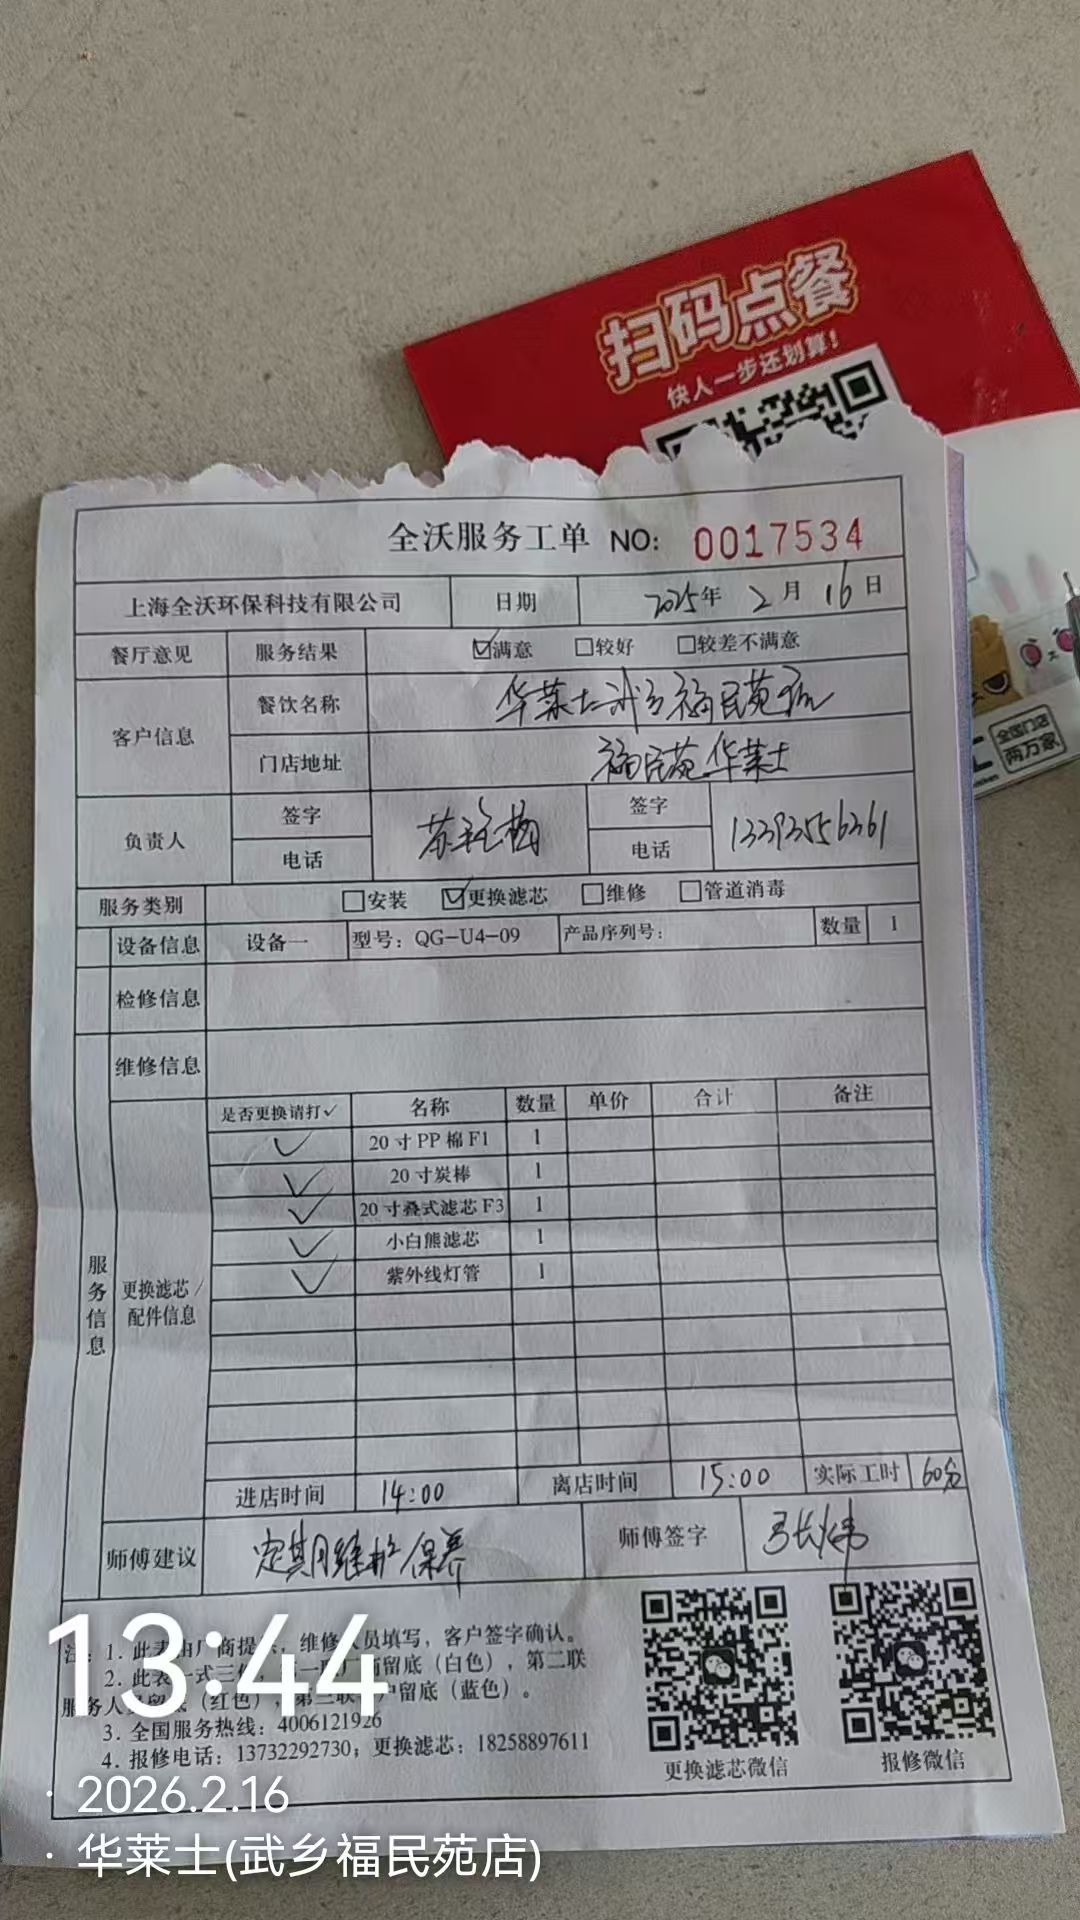 扫码点餐
快人一步还划算!
全国门店
两万家
全沃服务工单 NO: 0017534
上海全沃环保科技有限公司 日期 2025年 2月 16日
餐厅意见 服务结果 ☑满意 □较好 □较差不满意
客户信息 餐饮名称 华莱士武乡福民苑店
门店地址 福民苑华莱士
负责人 签字 签字
电话 电话 13393556361
服务类别 □安装 ☑更换滤芯 □维修 □管道消毒
设备信息 设备一 型号: QG-U4-09 产品序列号: 数量 1
检修信息
维修信息
服务信息
更换滤芯/
配件信息
是否更换请打✓ 名称 数量 单价 合计 备注
✓ 20寸PP棉F1 1
✓ 20寸炭棒 1
✓ 20寸叠式滤芯F3 1
✓ 小白熊滤芯 1
✓ 紫外线灯管 1
进店时间 14:00 离店时间 15:00 实际工时 60分
师傅建议 定期维护保养 师傅签字
注: 1. 此表由厂商提,维修人员填写,客户签字确认。
2. 此表一式三 厂商留底(白色),第二联
服务人员留底(红色),第三联 户留底(蓝色)。
3. 全国服务热线: 4006121926
4. 报修电话: 13732292730; 更换滤芯: 18258897611
更换滤芯微信 报修微信
13:44
· 2026.2.16
· 华莱士(武乡福民苑店)